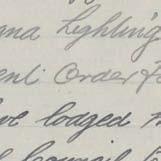 and Lighting
ent. Order Fo
ve lodged
Council